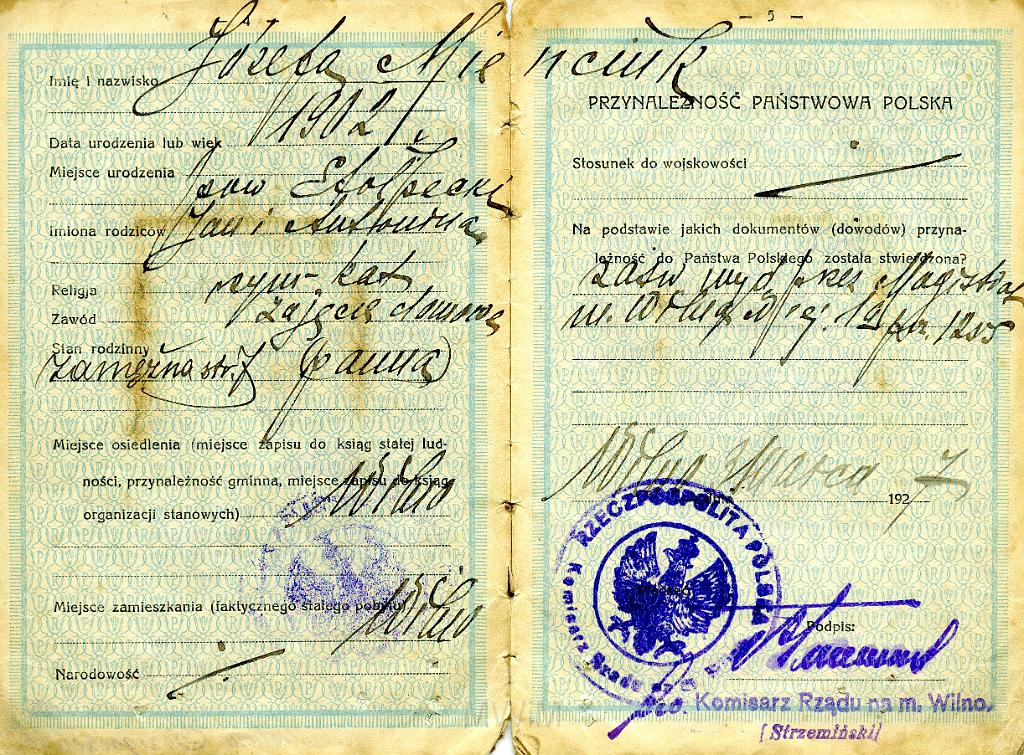 Imię i nazwisko Józefa Mienciuk
Data urodzenia lub wiek 1902 r.
Miejsce urodzenia
pow Stołpecki
imiona rodziców Jan i Antonina
Religja rzym-kat
Zawód zajęcie domowe
Stan rodzinny
zamężna str. 7 (panna)
Miejsce osiedlenia (miejsce zapisu do ksiąg stałej lud-
ności, przynależność gminna, miejsce zapisu do ksiąg
organizacji stanowych) Wilno
Miejsce zamieszkania (faktycznego stałego pobytu) Wilno
Narodowość
— 5 —
PRZYNALEŻNOŚĆ PAŃSTWOWA POLSKA
Stosunek do wojskowości
Na podstawie jakich dokumentów (dowodów) przyna-
leżność do Państwa Polskiego została stwierdzona?
zaśw wyd przez Magistrat
m. Wilna
Wilno 192 7
RZECZPOSPOLITA POLSKA
Komisarz Rządu na m. Wilno
Podpis:
Komisarz Rządu na m. Wilno.
[Strzemiński]